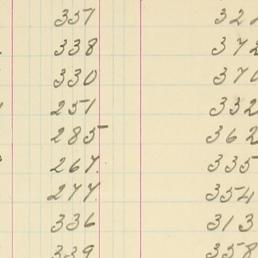 337 322
338 372
330 370
251 332
285 362
267. 335
277. 354
336 313
339 358